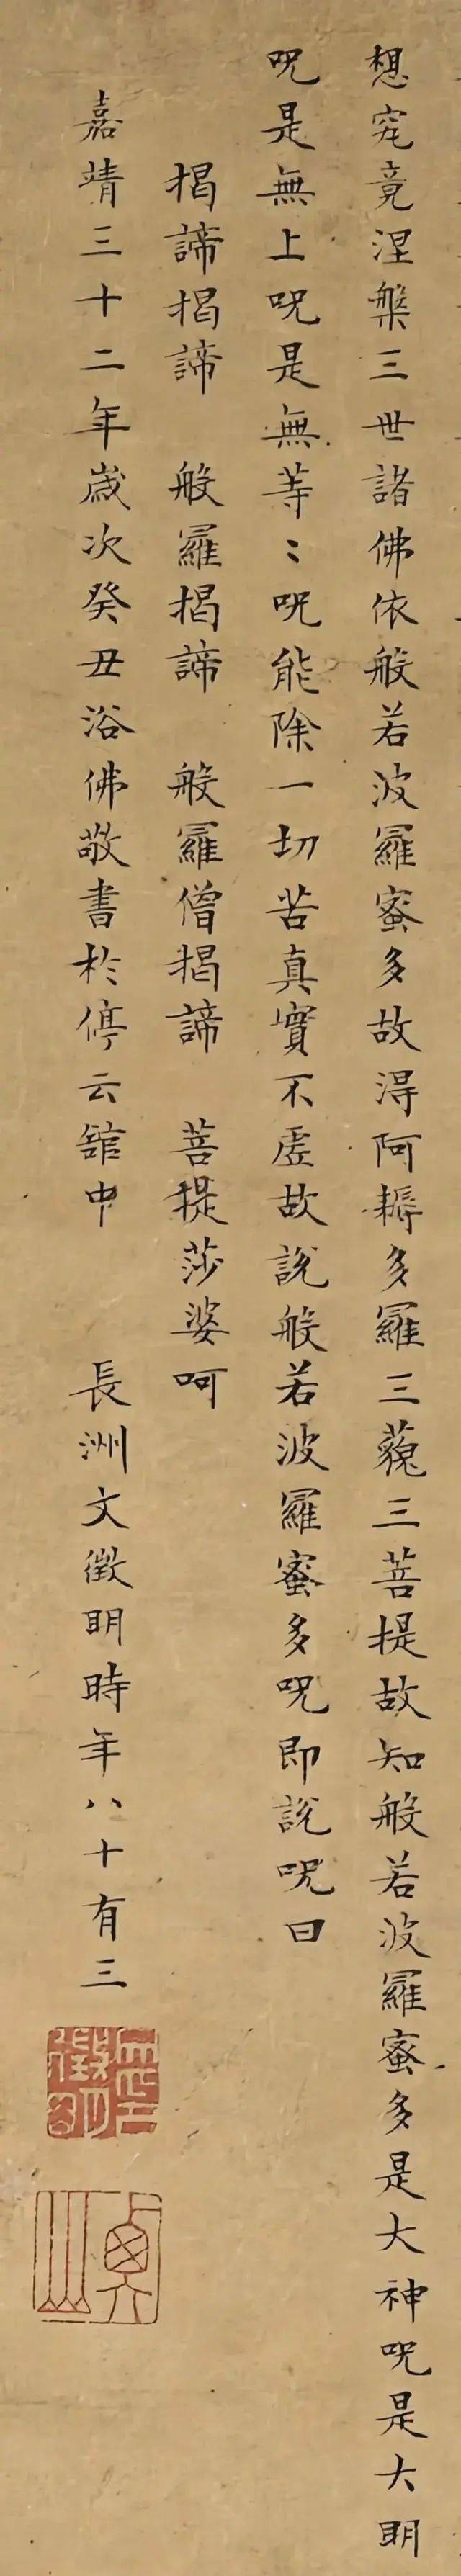 想究竟涅槃三世諸佛依般若波羅蜜多故得阿耨多羅三藐三菩提故知般若波羅蜜多是大神呪是大明
呪是無上呪是無等〻呪能除一切苦真實不虛故說般若波羅蜜多呪即說呪曰
揭諦揭諦 般羅揭諦 般羅僧揭諦 菩提莎婆呵
嘉靖三十二年歲次癸丑浴佛敬書於停云舘中 長洲文徵明時年八十有三